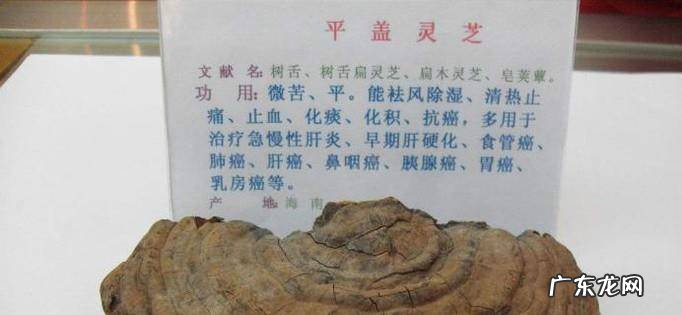 平盖灵芝
文献名:树舌、树舌扁灵芝、扁木灵芝、皂荚蕈。
功 用:微苦、平。能祛风除湿、清热止
痛、止血、化痰、化积、抗癌，多用于
治疗急慢性肝炎、早期肝硬化、食管癌、
肺癌、肝癌、鼻咽癌、胰腺癌、胃癌、
乳房癌等。
产 地:海南
广东龙网